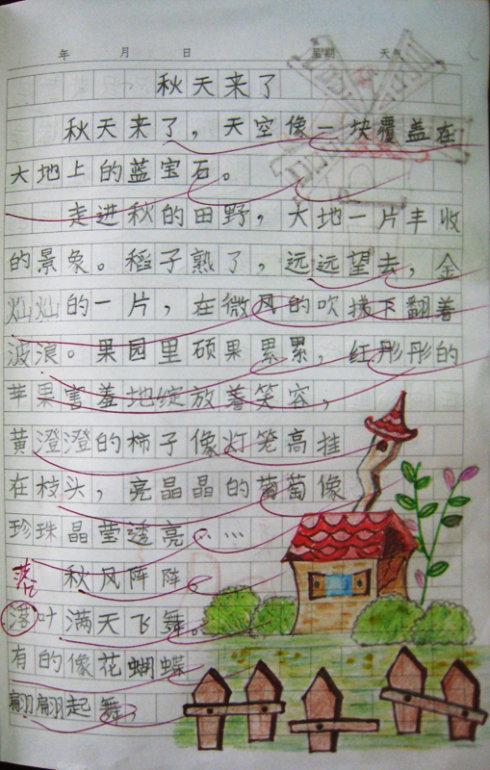 年 月 日 星期 天气
秋天来了
秋天来了，天空像一块覆盖在
大地上的蓝宝石。
走进秋的田野，大地一片丰收
的景象。稻子熟了，远远望去，金
灿灿的一片，在微风的吹拂下翻着
波浪。果园里硕果累累，红彤彤的
苹果害羞地绽放着笑容，
黄澄澄的柿子像灯笼高挂
在枝头，亮晶晶的葡萄像
珍珠晶莹透亮……
秋风阵阵，
落叶满天飞舞。
有的像花蝴蝶
翩翩起舞，